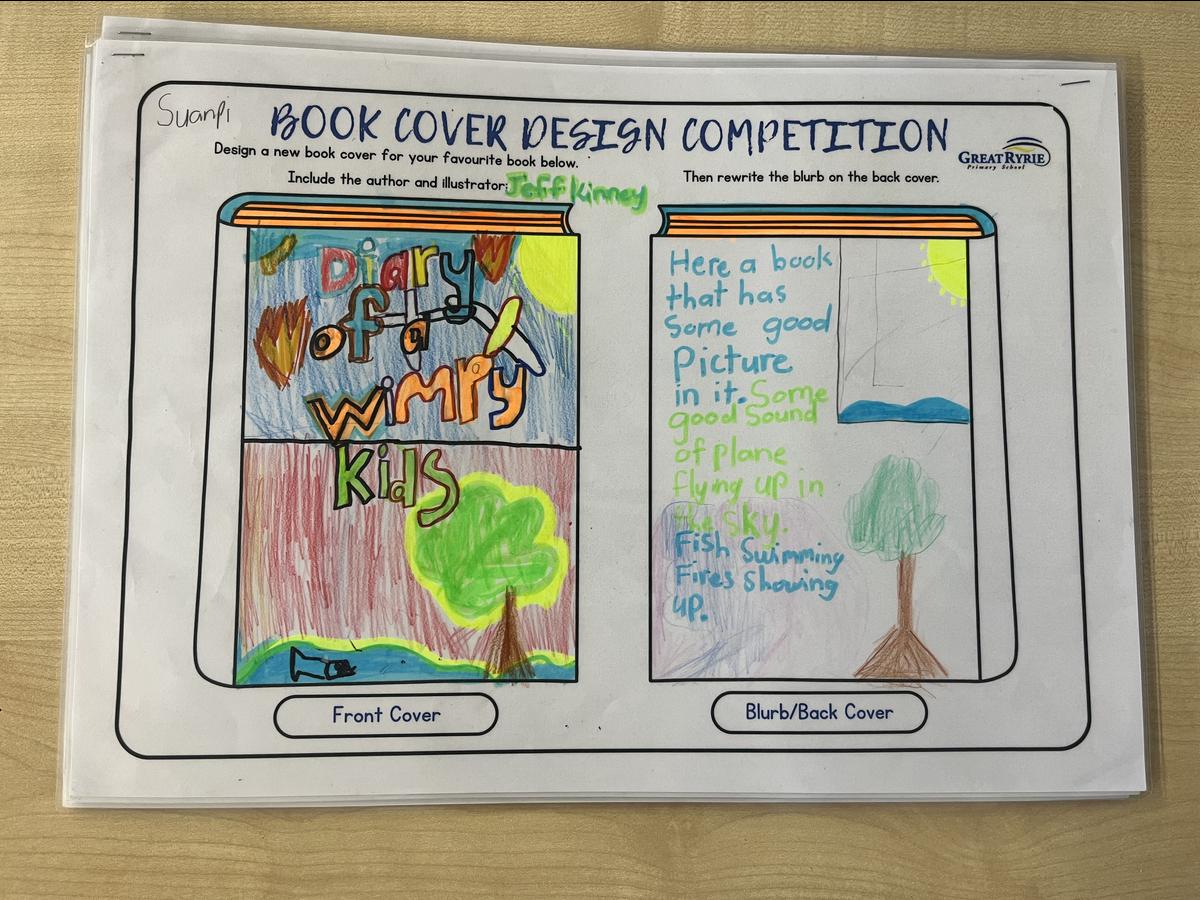 Suanpi
BOOK COVER DESIGN COMPETITION
Design a new book cover for your favourite book below.
Include the author and illustrator: Jeff Kinney
Then rewrite the blurb on the back cover.
GREAT RYRIE
Primary School
Diary
of a
Wimpy
Kids
Here a book
that has
Some good
Picture
in it. Some
good Sound
of plane
flying up in
the sky.
Fish Swimming
Fires Showing
up.
Front Cover
Blurb/Back Cover